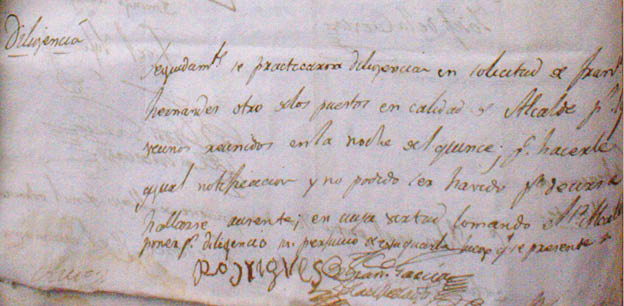 Diligencia
Seguidamte. se practicaron diligencias en solicitud de Fran
hernandes otro de los puestos en calidad de Alcalde pr.
vecinos reunidos en la noche del quince; pa. hacerle
igual notificacion y no podido ser havido pr. decirse
hallarse ausente; en cuya virtud lo mando
poner pr. diligencia sin perjuicio de que presente
Rodrigues
Fran. Garcia